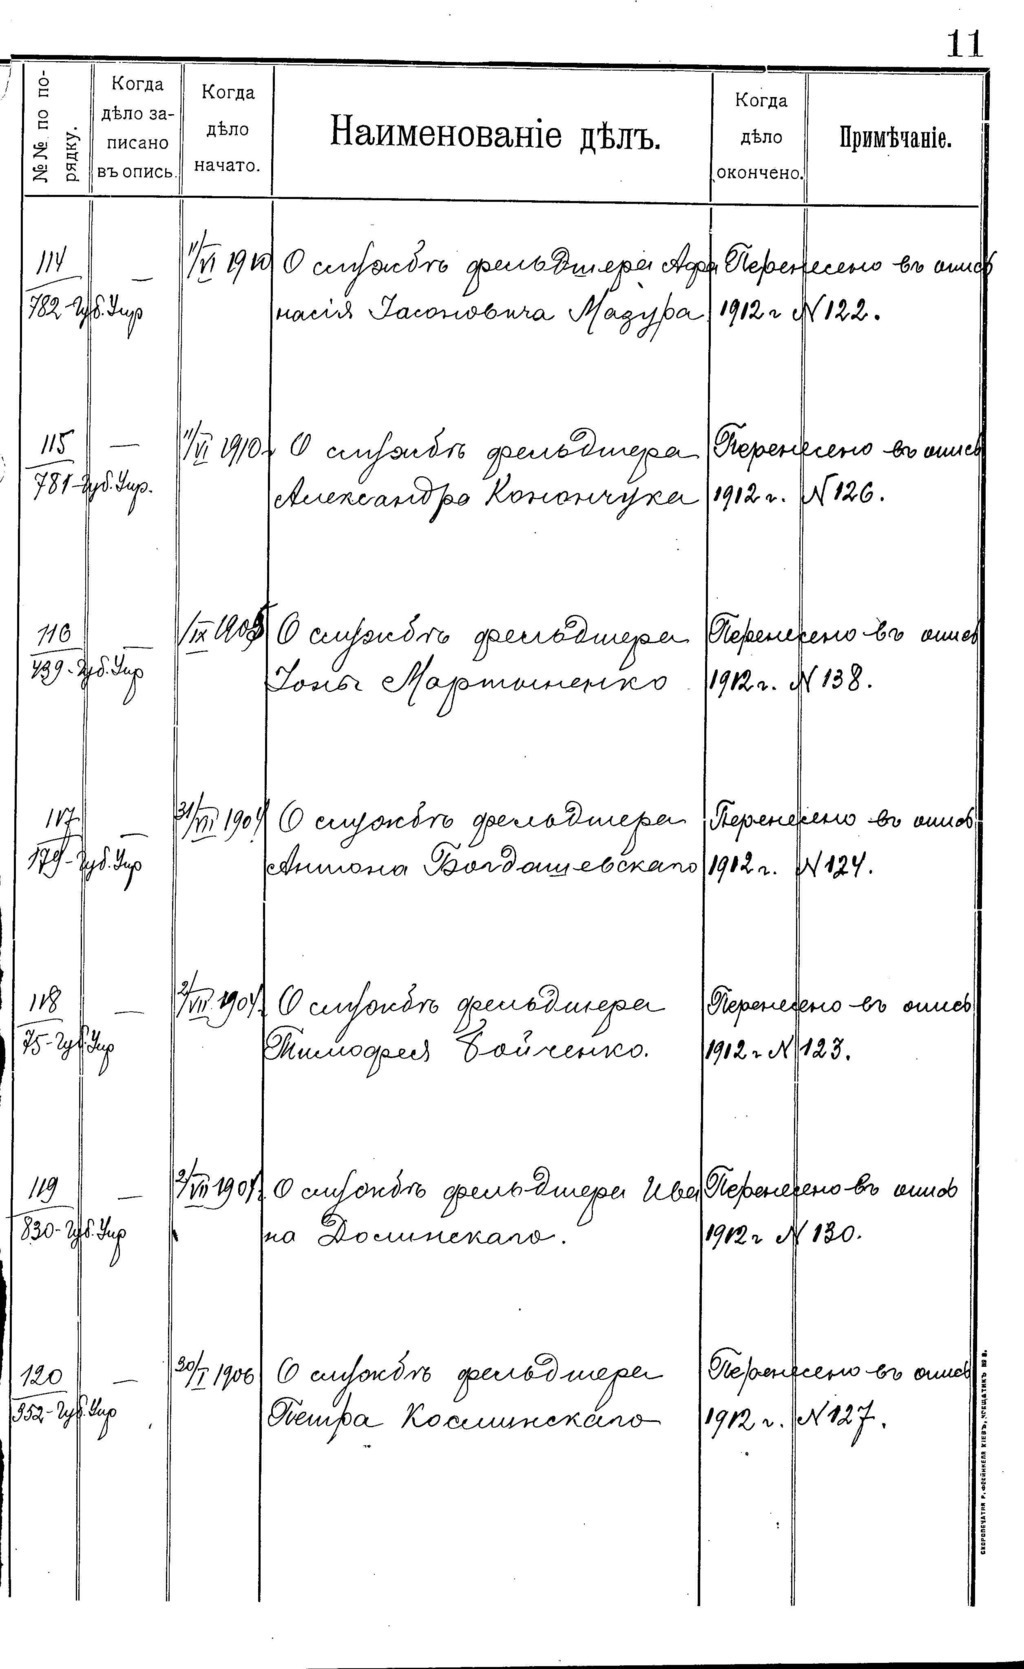 11
№№ по по-
рядку.
Когда
дѣло за-
писано
въ опись.
Когда
дѣло
начато.
Наименованіе дѣлъ.
Когда
дѣло
окончено.
Примѣчаніе.
114 — 11/VI 1910 О службѣ фельдшера Афа Перенесено въ опись
782-Губ. Упр насія Іасоновича Мазура 1912 г N 122.
115 — 11/VI 1910. О службѣ фельдшера Перенесено въ опись
781-Губ. Упр. Александра Конончука 1912 г. N 126.
116 — /IX 1905 О службѣ фельдшера Перенесено въ опись
439-Губ. Упр Іоны Мартыненко 1912 г. N 138.
117 — 31/VII 1904 О службѣ фельдшера Перенесено въ опись
179-Губ. Упр Антона Богдашевскаго 1912 г. N 124.
118 — 2/VII 1904. О службѣ фельдшера Перенесено въ опись
75-Губ. Упр Тимофея Бойченко. 1912 г N 123.
119 — 2/VII 1904. О службѣ фельдшера Ива Перенесено въ опись
830-Губ. Упр на Долинскаго. 1912 г N 130.
120 — 30/I 1906 О службѣ фельдшера Перенесено въ опись
952-Губ. Упр Петра Косминскаго 1912 г. N 127.
СКОРОПЕЧАТНЯ Р. КІЕВЪ, КРЕЩАТИКЪ